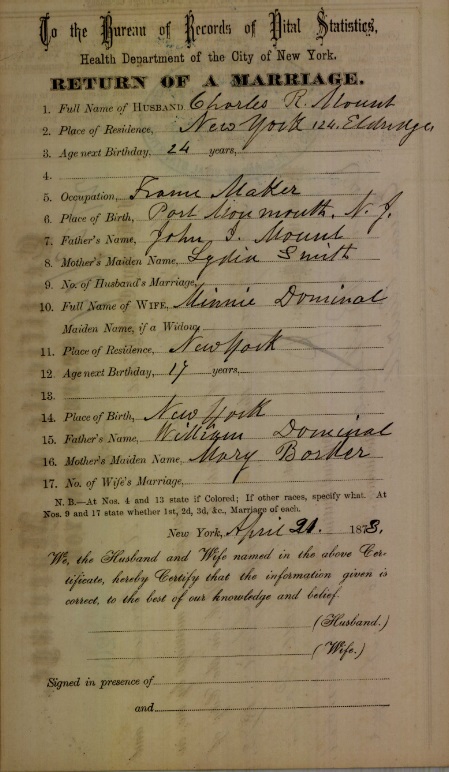 To the Bureau of Records of Vital Statistics,
Health Department of the City of New York.
RETURN OF A MARRIAGE.
1. Full Name of HUSBAND Charles R. Mount
2. Place of Residence, New York 124 Eldridge
3. Age next Birthday, 24 years,
4.
5. Occupation, Frame Maker
6. Place of Birth, Port Monmouth, N. J.
7. Father's Name, John I. Mount
8. Mother's Maiden Name, Lydia Smith
9. No. of Husband's Marriage,
10. Full Name of WIFE, Minnie Dominal
Maiden Name, if a Widow,
11. Place of Residence, New York
12. Age next Birthday, 17 years,
13.
14. Place of Birth, New York
15. Father's Name, William Dominal
16. Mother's Maiden Name, Mary
17. No. of Wife's Marriage,
N. B.—At Nos. 4 and 13 state if Colored; If other races, specify what. At
Nos. 9 and 17 state whether 1st, 2d, 3d, &c., Marriage of each.
New York, April 21. 1873.
We, the Husband and Wife named in the above Cer-
tificate, hereby Certify that the information given is
correct, to the best of our knowledge and belief.
(Husband.)
(Wife.)
Signed in presence of
and